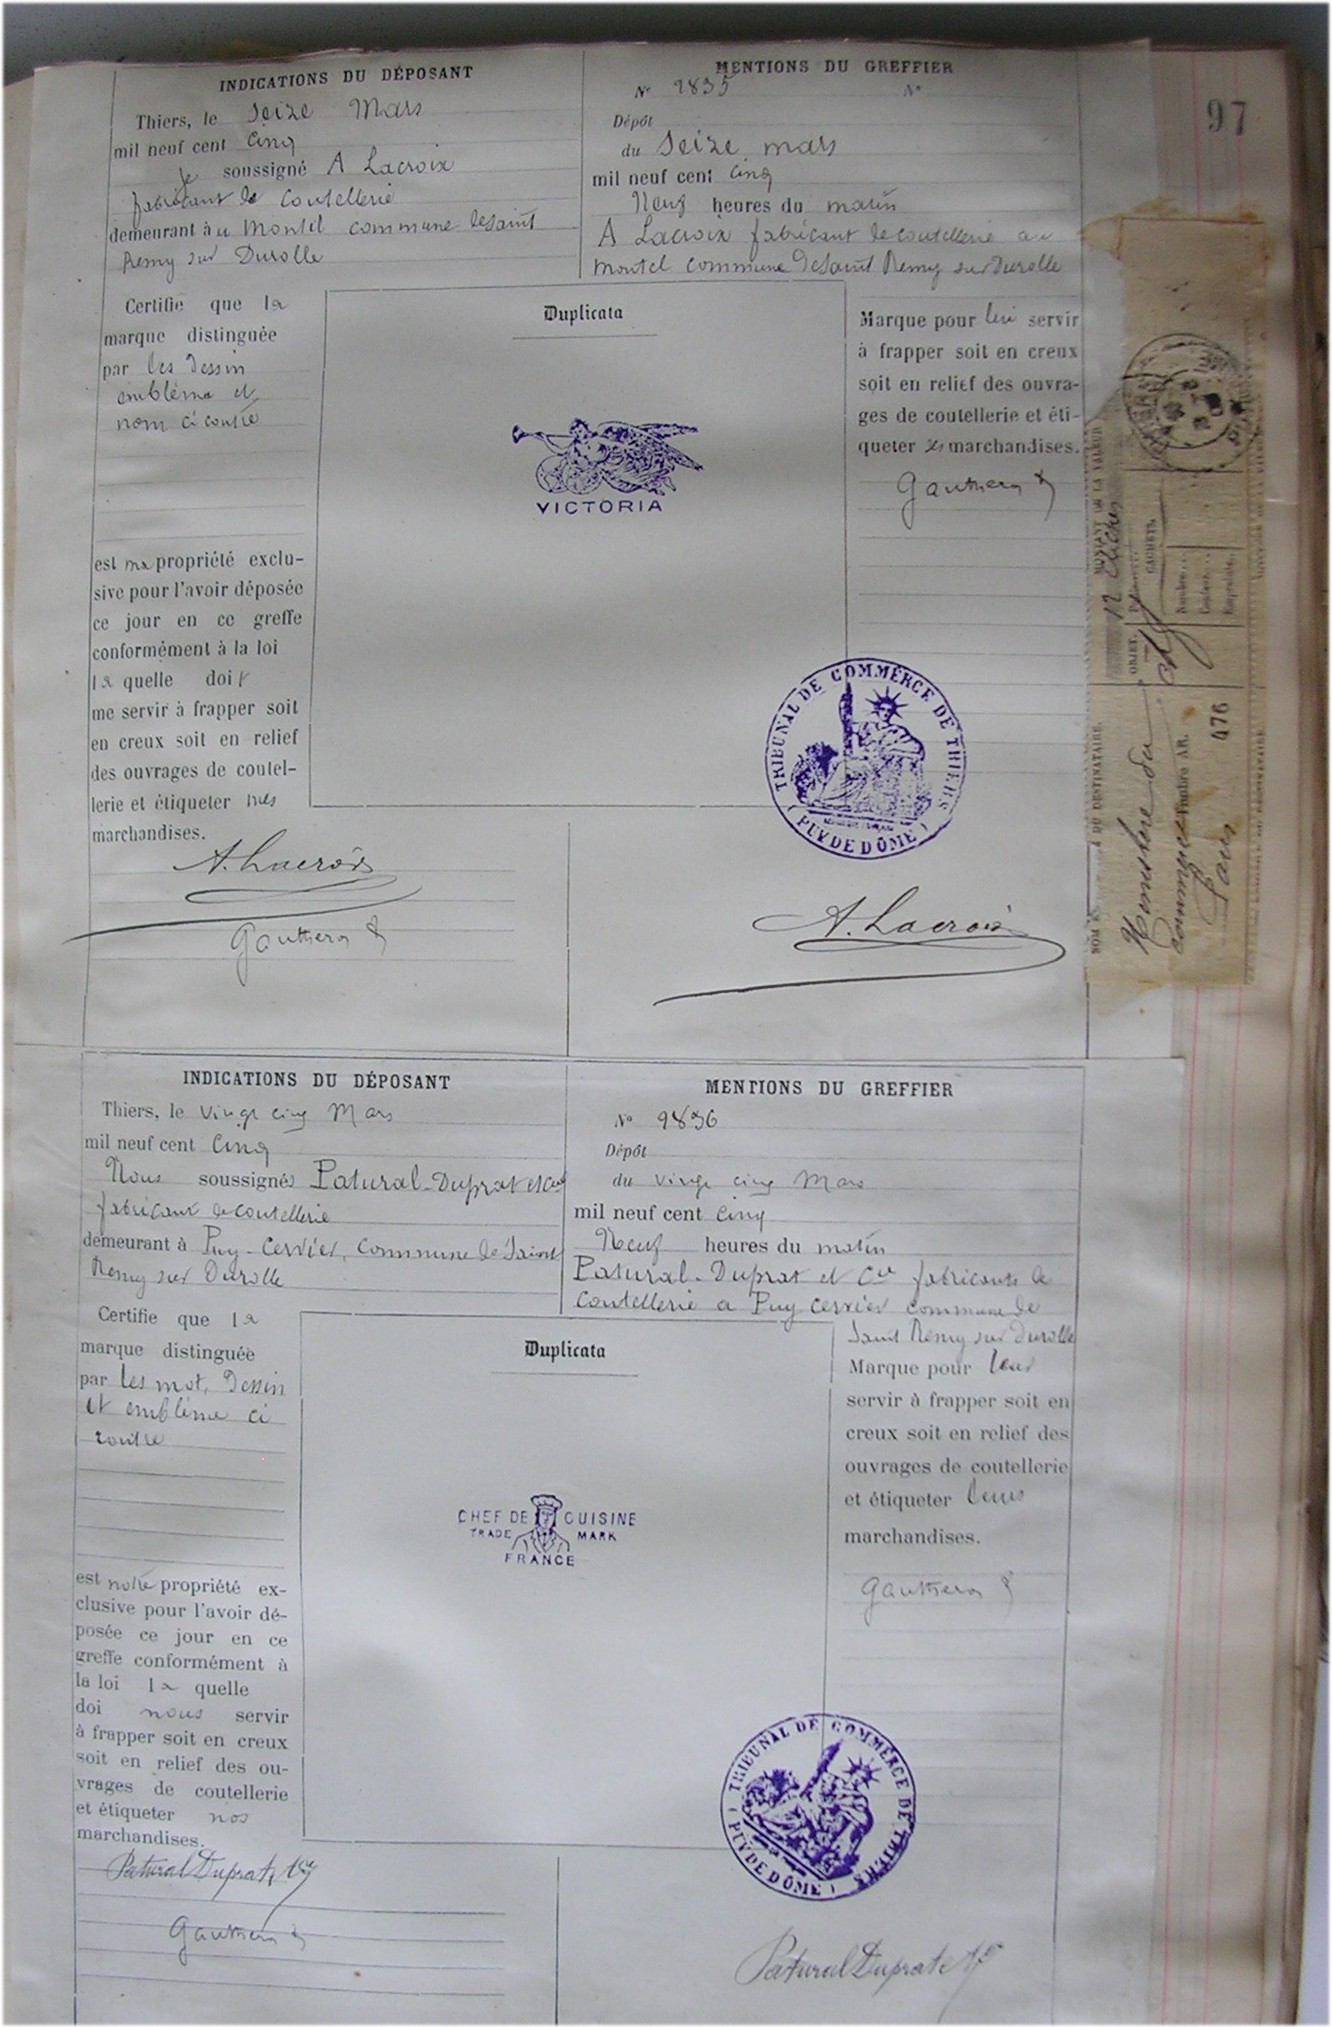 97
INDICATIONS DU DÉPOSANT
Thiers, le Seize Mars
mil neuf cent Cinq
je soussigné A Lacroix
fabricant de Coutellerie
demeurant à u Montel commune de Saint
Remy sur Durolle
Certifie que la
marque distinguée
par les Dessin
emblème et
nom ci contre
est ma propriété exclu-
sive pour l'avoir déposée
ce jour en ce greffe
conformément à la loi
la quelle doit
me servir à frapper soit
en creux soit en relief
des ouvrages de coutel-
lerie et étiqueter mes
marchandises.
A. Lacroix
MENTIONS DU GREFFIER
N° 2835 N°
Dépôt
du Seize mars
mil neuf cent cinq
Neuf heures du matin
A Lacroix fabricant de coutellerie au
Montel commune de Saint Remy sur Durolle
Duplicata
VICTORIA
Marque pour lui servir
à frapper soit en creux
soit en relief des ouvra-
ges de coutellerie et éti-
queter ses marchandises.
TRIBUNAL DE COMMÈRCE DE THIERS
( PUY DE DÔME )
A. Lacroix
MONTANT DE LA VALEUR
OBJET.
CACHETS.
NOM
DU DESTINATAIRE.
Ministere du
commerce
Timbre AR.
Paris
476
INDICATIONS DU DÉPOSANT
Thiers, le vingt cinq Mars
mil neuf cent Cinq
Nous soussignés Patural-Duprat et Cie
fabricant de coutellerie
demeurant à Puy-Cervier, Commune de Saint
Remy sur Durolle
Certifie que la
marque distinguée
par les mot, Dessin
et emblème ci
contre
est notre propriété ex-
clusive pour l'avoir dé-
posée ce jour en ce
greffe conformément à
la loi la quelle
doi nous servir
à frapper soit en creux
soit en relief des ou-
vrages de coutellerie
et étiqueter nos
marchandises.
Patural Duprat & Cie
MENTIONS DU GREFFIER
N° 2836
Dépôt
du vingt cinq Mars
mil neuf cent Cinq
Neuf heures du matin
Patural-Duprat et Cie fabricants de
Coutellerie a Puy Cervier commune de
Saint Remy sur Durolle
Duplicata
CHEF DE CUISINE
TRADE MARK
FRANCE
Marque pour leur
servir à frapper soit en
creux soit en relief des
ouvrages de coutellerie
et étiqueter leurs
marchandises.
TRIBUNAL DE COMMÈRCE DE THIERS
( PUY DE DÔME )
Patural Duprat & Cie